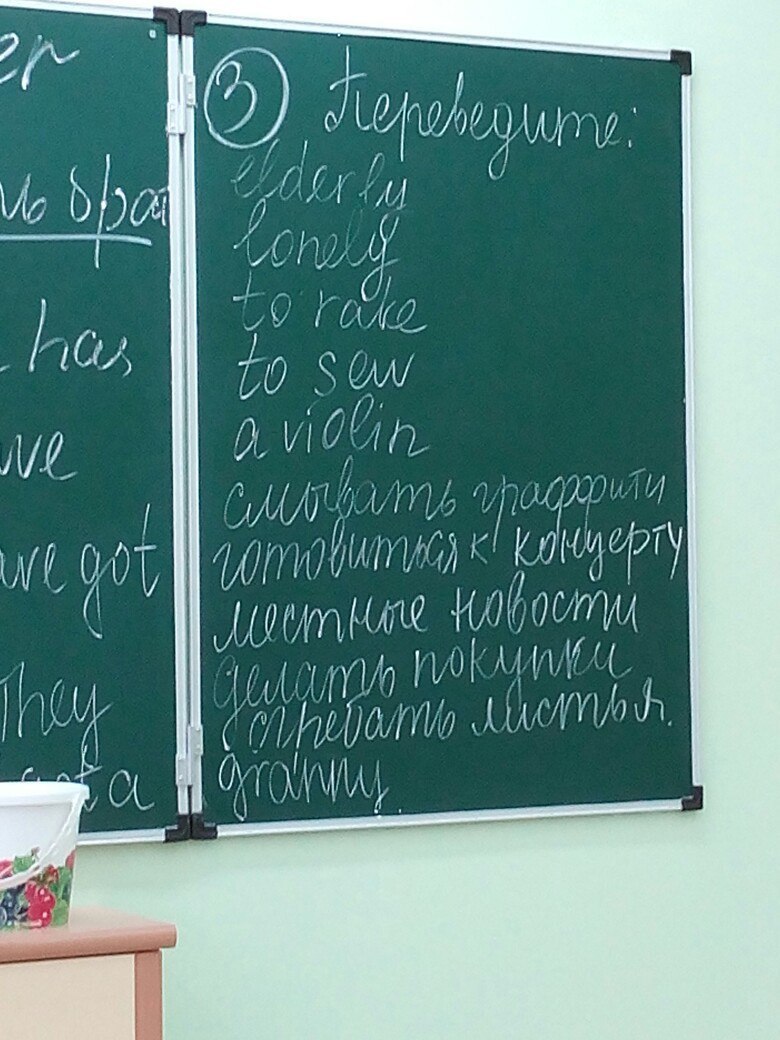 er
ть брат
has
ve
ave got
They
got a
3 Переведите:
elderly
lonely
to rake
to sew
a violin
смывать граффити
готовиться к концерту
местные новости
делать покупки
сгребать листья.
granny